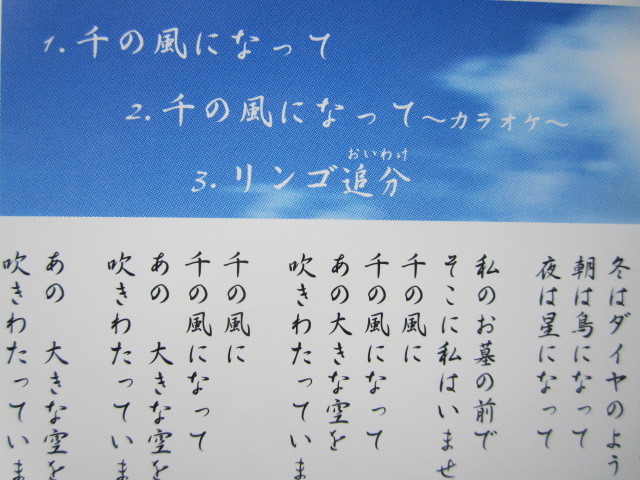 1. 千の風になって
2. 千の風になって～カラオケ～
おいわけ
3. リンゴ追分
冬はダイヤのよう
朝は鳥になって
夜は星になって
私のお墓の前で
そこに私はいませ
千の風に
千の風になって
あの大きな空を
吹きわたっていま
千の風に
千の風になって
あの 大きな空を
吹きわたっていま
あの 大きな空を
吹きわたっていま